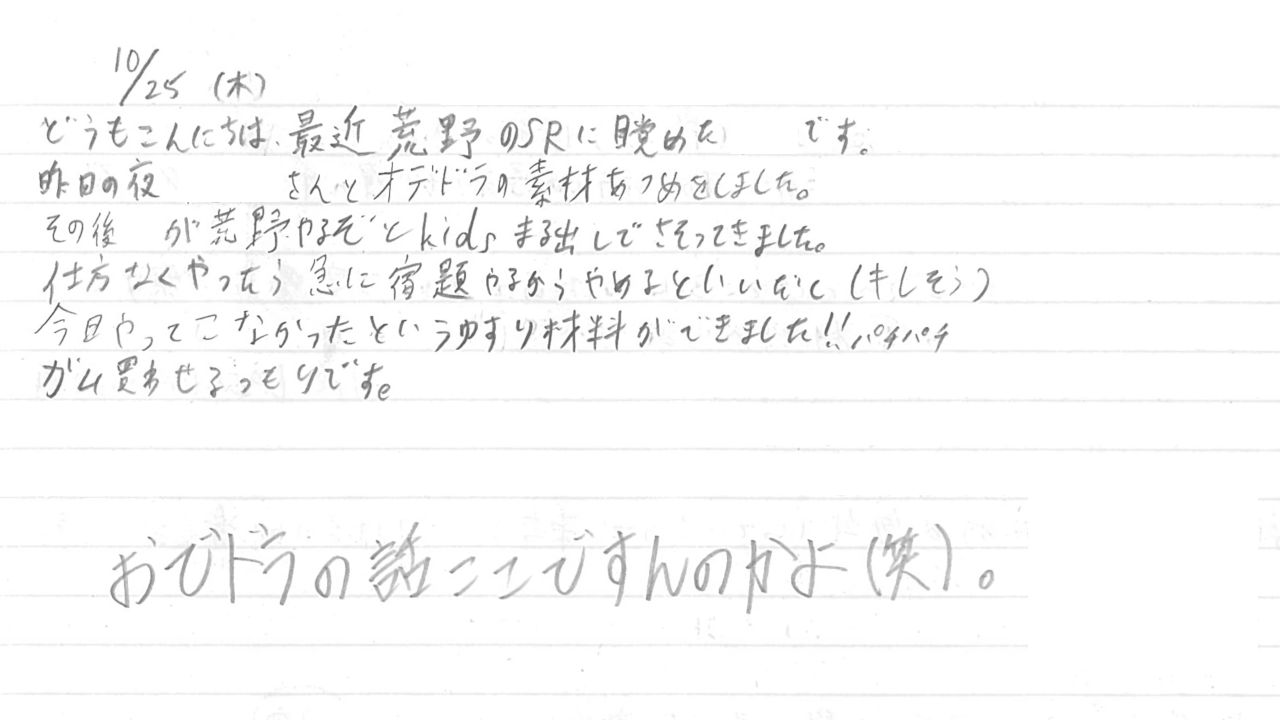 10/25 (木)
どうもこんにちは、最近荒野のSRに目覚めた です。
昨日の夜 さんとオデドラの素材あつめをしました。
その後 が荒野やるぞとkidsまる出しでさそってきました。
仕方なくやったら急に宿題やるからやめるといいだし(キしそう)
今日やってこなかったというゆすり材料ができました!!パチパチ
ガム買わせるつもりです。
おでドラの話ここですんのかよ(笑)。